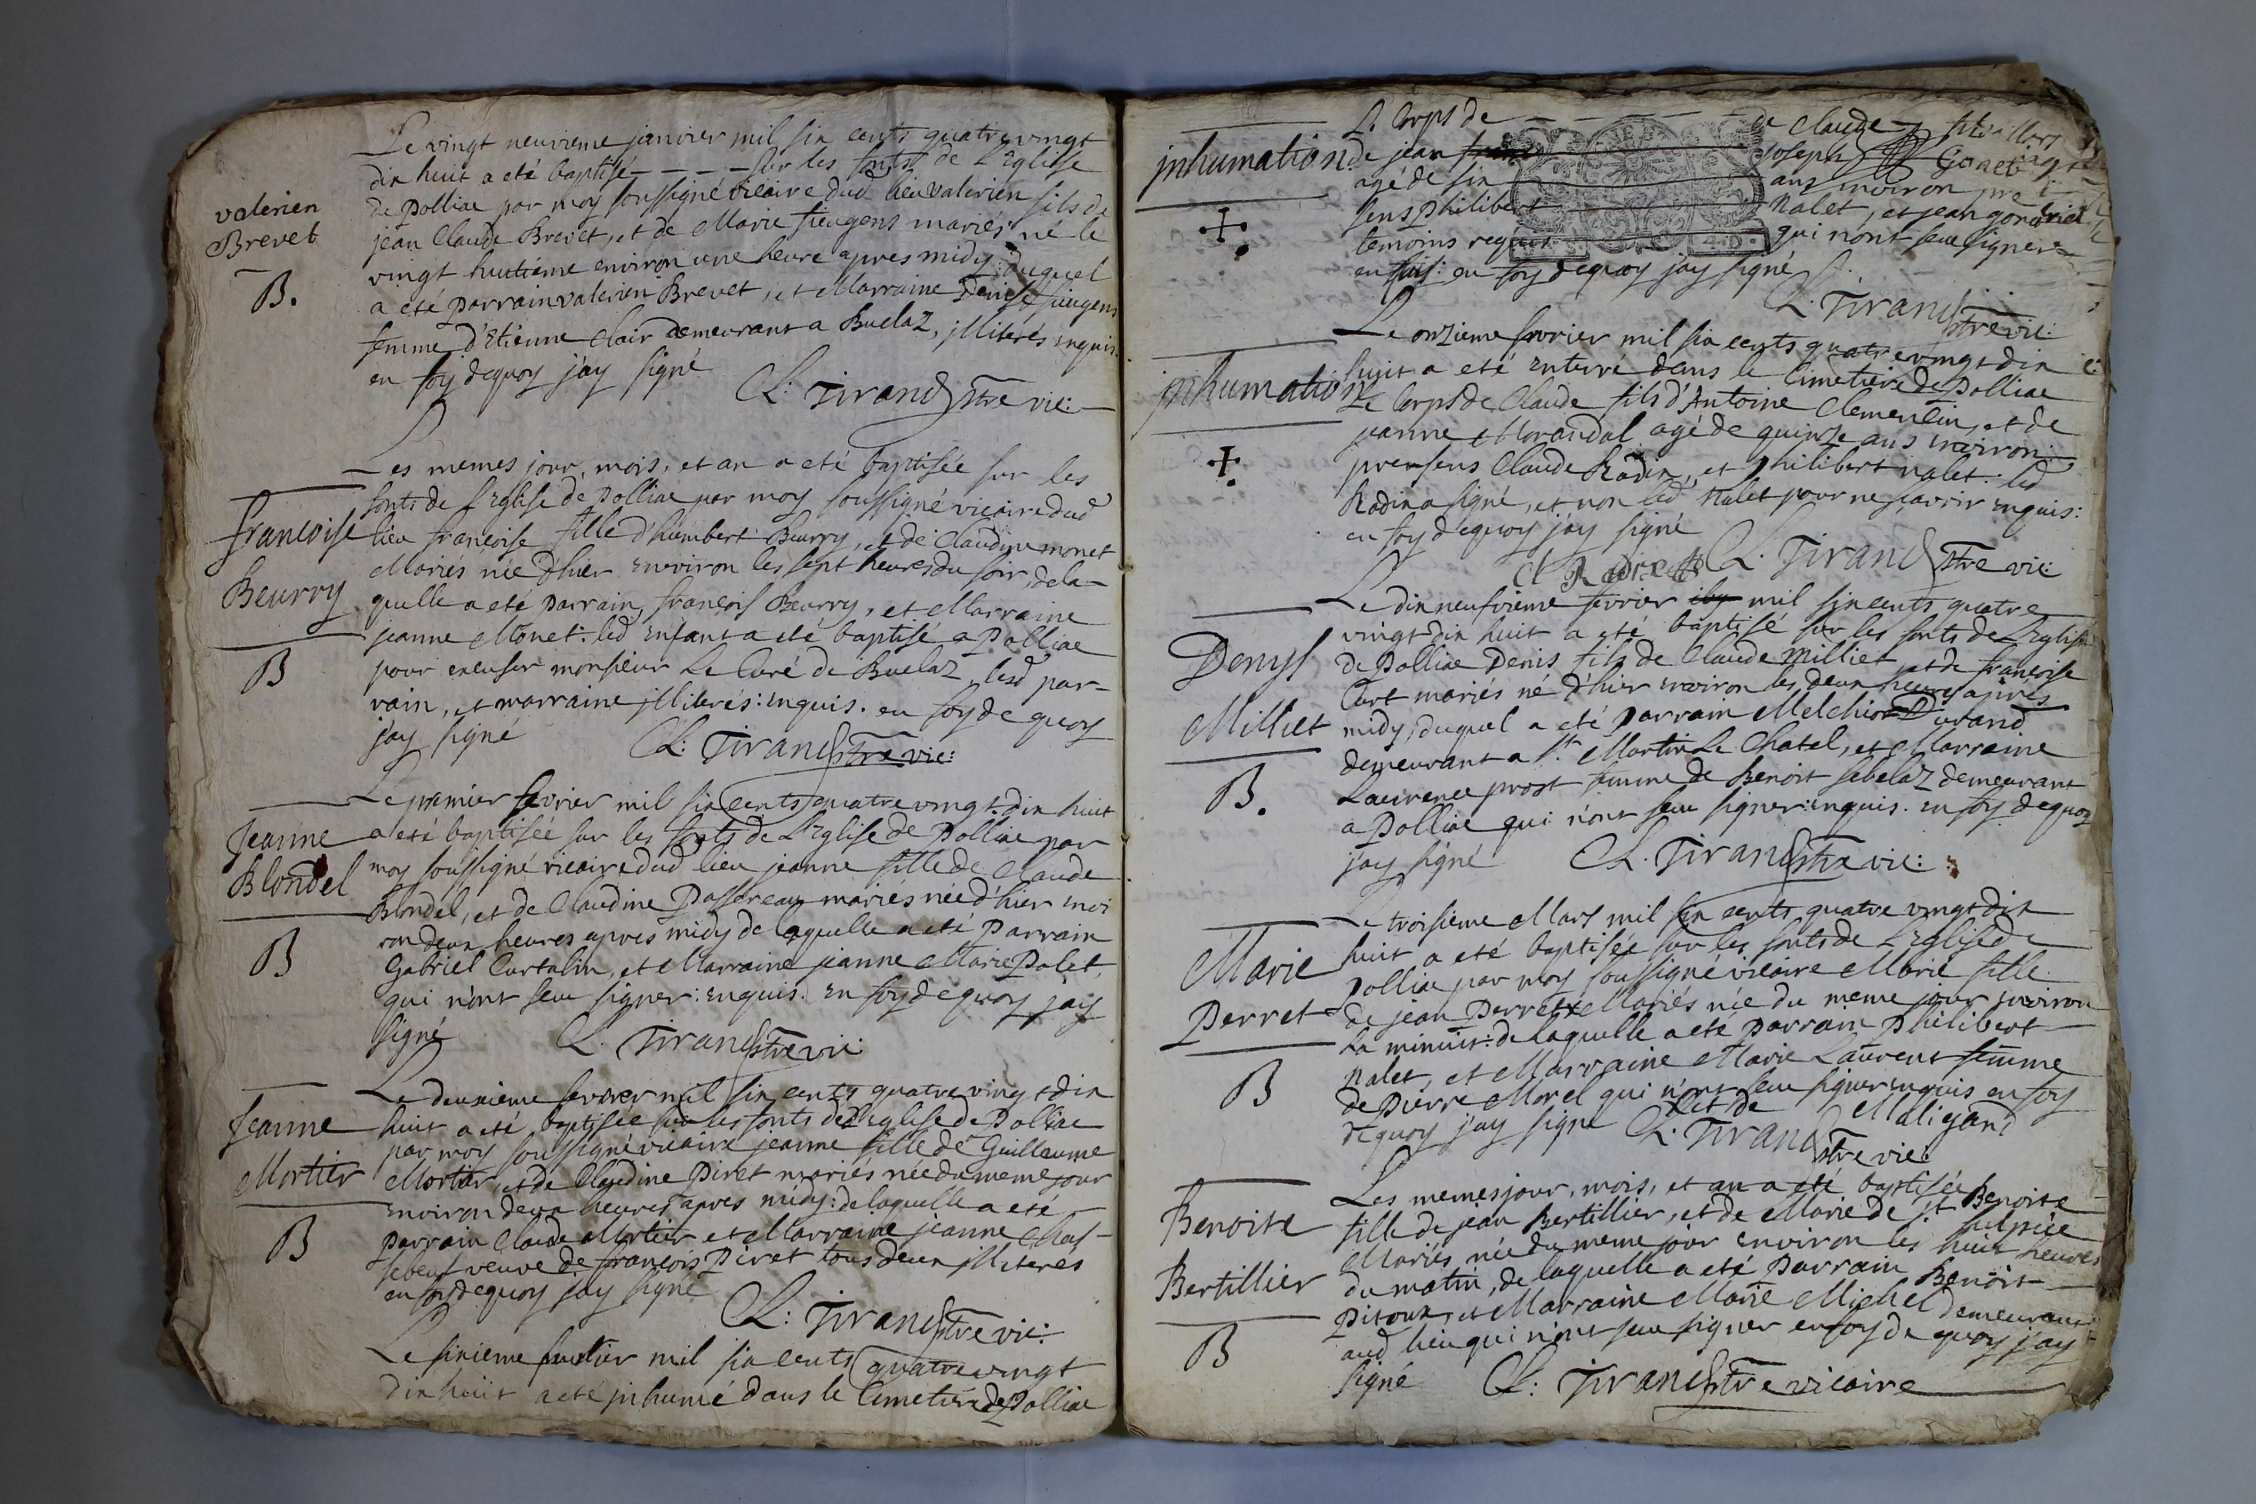 Le vingt neuvieme janvier mil six cents quatre vingt
dix huit a eté baptisé sur les fonts de L'Eglise
de Polliac par moy soussigné vicaire dud lieu valerien fils de
valerien
Brevet
B.
jean Claude Brevet, et de Marie fieugens mariés né le
vingt huitieme environ une heure apres midy: duquel
a eté Parrain valerien Brevet, et Marraine Denise fieugens
femme d'Etienne Clair demeurant a Buelaz, illiterés enquis
en foy dequoy j'ay signé
C: Tirand ptre vic:
Les memes jour, mois, et an a eté baptisée sur les
fonts de L'Eglise de Polliac par moy soussigné vicaire dud
francoise
Beurry
B
lieu françoise fille d'humbert Beurry, et de Claudine monet
Mariés née d'hier environ les sept heures du soir, de la-
quelle a eté Parrain, françois Beurry, et Marraine
jeanne Monet: led enfant a eté baptisé a Polliac
pour excuser monsieur Le Curé de Buelaz, lesd par-
rain, et marraine illiterés: enquis. en foy de quoy
j'ay signé
C: Tirand ptre vic:
Le premier fevrier mil six cents quatre vingt dix huit
Jeanne
Blondel
B
a eté baptisée sur les fonts de L'Eglise de Polliac par
moy soussigné vicaire dud lieu jeanne fille de Claude
Blondel, et de Claudine Passereau mariés née d'hier envi
ron deux heures apres midy de laquelle a eté Parrain
Gabriel Curtalin, et Marraine jeanne Marie Palet,
qui n'ont seu signer: enquis. en foy de quoy j'ay
signé
C. Tirand ptre vic:
Le deuxieme fevrier mil six cents quatre vingt dix
Jeanne
Mortier
B
huit a eté baptisée sur les fonts de L'Eglise de Polliac
par moy soussigné vicaire jeanne fille de Guillaume
Mortier, et de Claudine Piret mariés née du meme jour
environ deux heures apres midy: de laquelle a eté
Parrain Claude Mortier et Marraine jeanne
veuve de françois Piret tous deux illiterés
en foy dequoy j'ay signé
C: Tirand ptre vic:
Le sixieme fevrier mil six cents quatre vingt
dix huit a eté inhumé dans le Cimetiere de Polliac
Le Corps de de Claude
inhumation.
de jean Joseph Gonet
agé de six ans environ pre
sens Philibert Nalet, et jean
temoins requis qui n'ont seu signer
en foy dequoy j'ay signé
C. Tirand ptre vic:
Le onzieme fevrier mil six cents quatre vingt dix
inhumation
huit a eté enterré dans le Cimetiere de Polliac
Le Corps de Claude fils d'Antoine Clementin, et de
jeanne Morandal agé de quinze ans environ:
presens Claude Radix, et Philibert nalet. led
Radix a signé, et non led Nalet pour ne sçavoir enquis:
en foy dequoy j'ay signé
Cl Radix C. Tirand ptre vic:
Le dix neufvieme fevrier mil six cents quatre
Denys
Milliet
B.
vingt dix huit a eté baptisé sur les fonts de L'Eglise
de Polliac Denis fils de Claude Milliet, et de françoise
Curt mariés né d'hier environ les deux heures apres
midy, duquel a eté Parrain Melchior Durand
demeurant a St. Martin Le Chatel, et Marraine
Laurence prost femme de Benoit sebelaz demeurant
a Polliac qui n'ont seu signer: enquis. en foy dequoy
j'ay signé C. Tirand ptre vic:
Le troisieme Mars mil six cents quatre vingt dix
Marie
Perret
B
huit a eté baptisée sur les fonts de L'Eglise de
Polliac par moy soussigné vicaire Marie fille
de jean Perret x Mariés née du meme jour environ
La minuit: de laquelle a eté Parrain Philibert
Nalet, et Marraine Marie Laurent femme
de Pierre Morel qui n'ont seu signer enquis en foy
dequoy j'ay signé x et de Maligand
C. Tirand ptre vic:
Les memes jour, mois, et an a eté baptisée Benoite
Benoite
Bertillier
B
fille de jean Bertillier, et de Marie de St sulpice
Mariés née du meme jour environ les huit heures
du matin, de laquelle a eté Parrain Benoit
Pitoux, et Marraine Marie Michel demeurant
aud lieu qui n'ont seu signer en foy de quoy j'ay
signé C: Tirand ptre vicaire